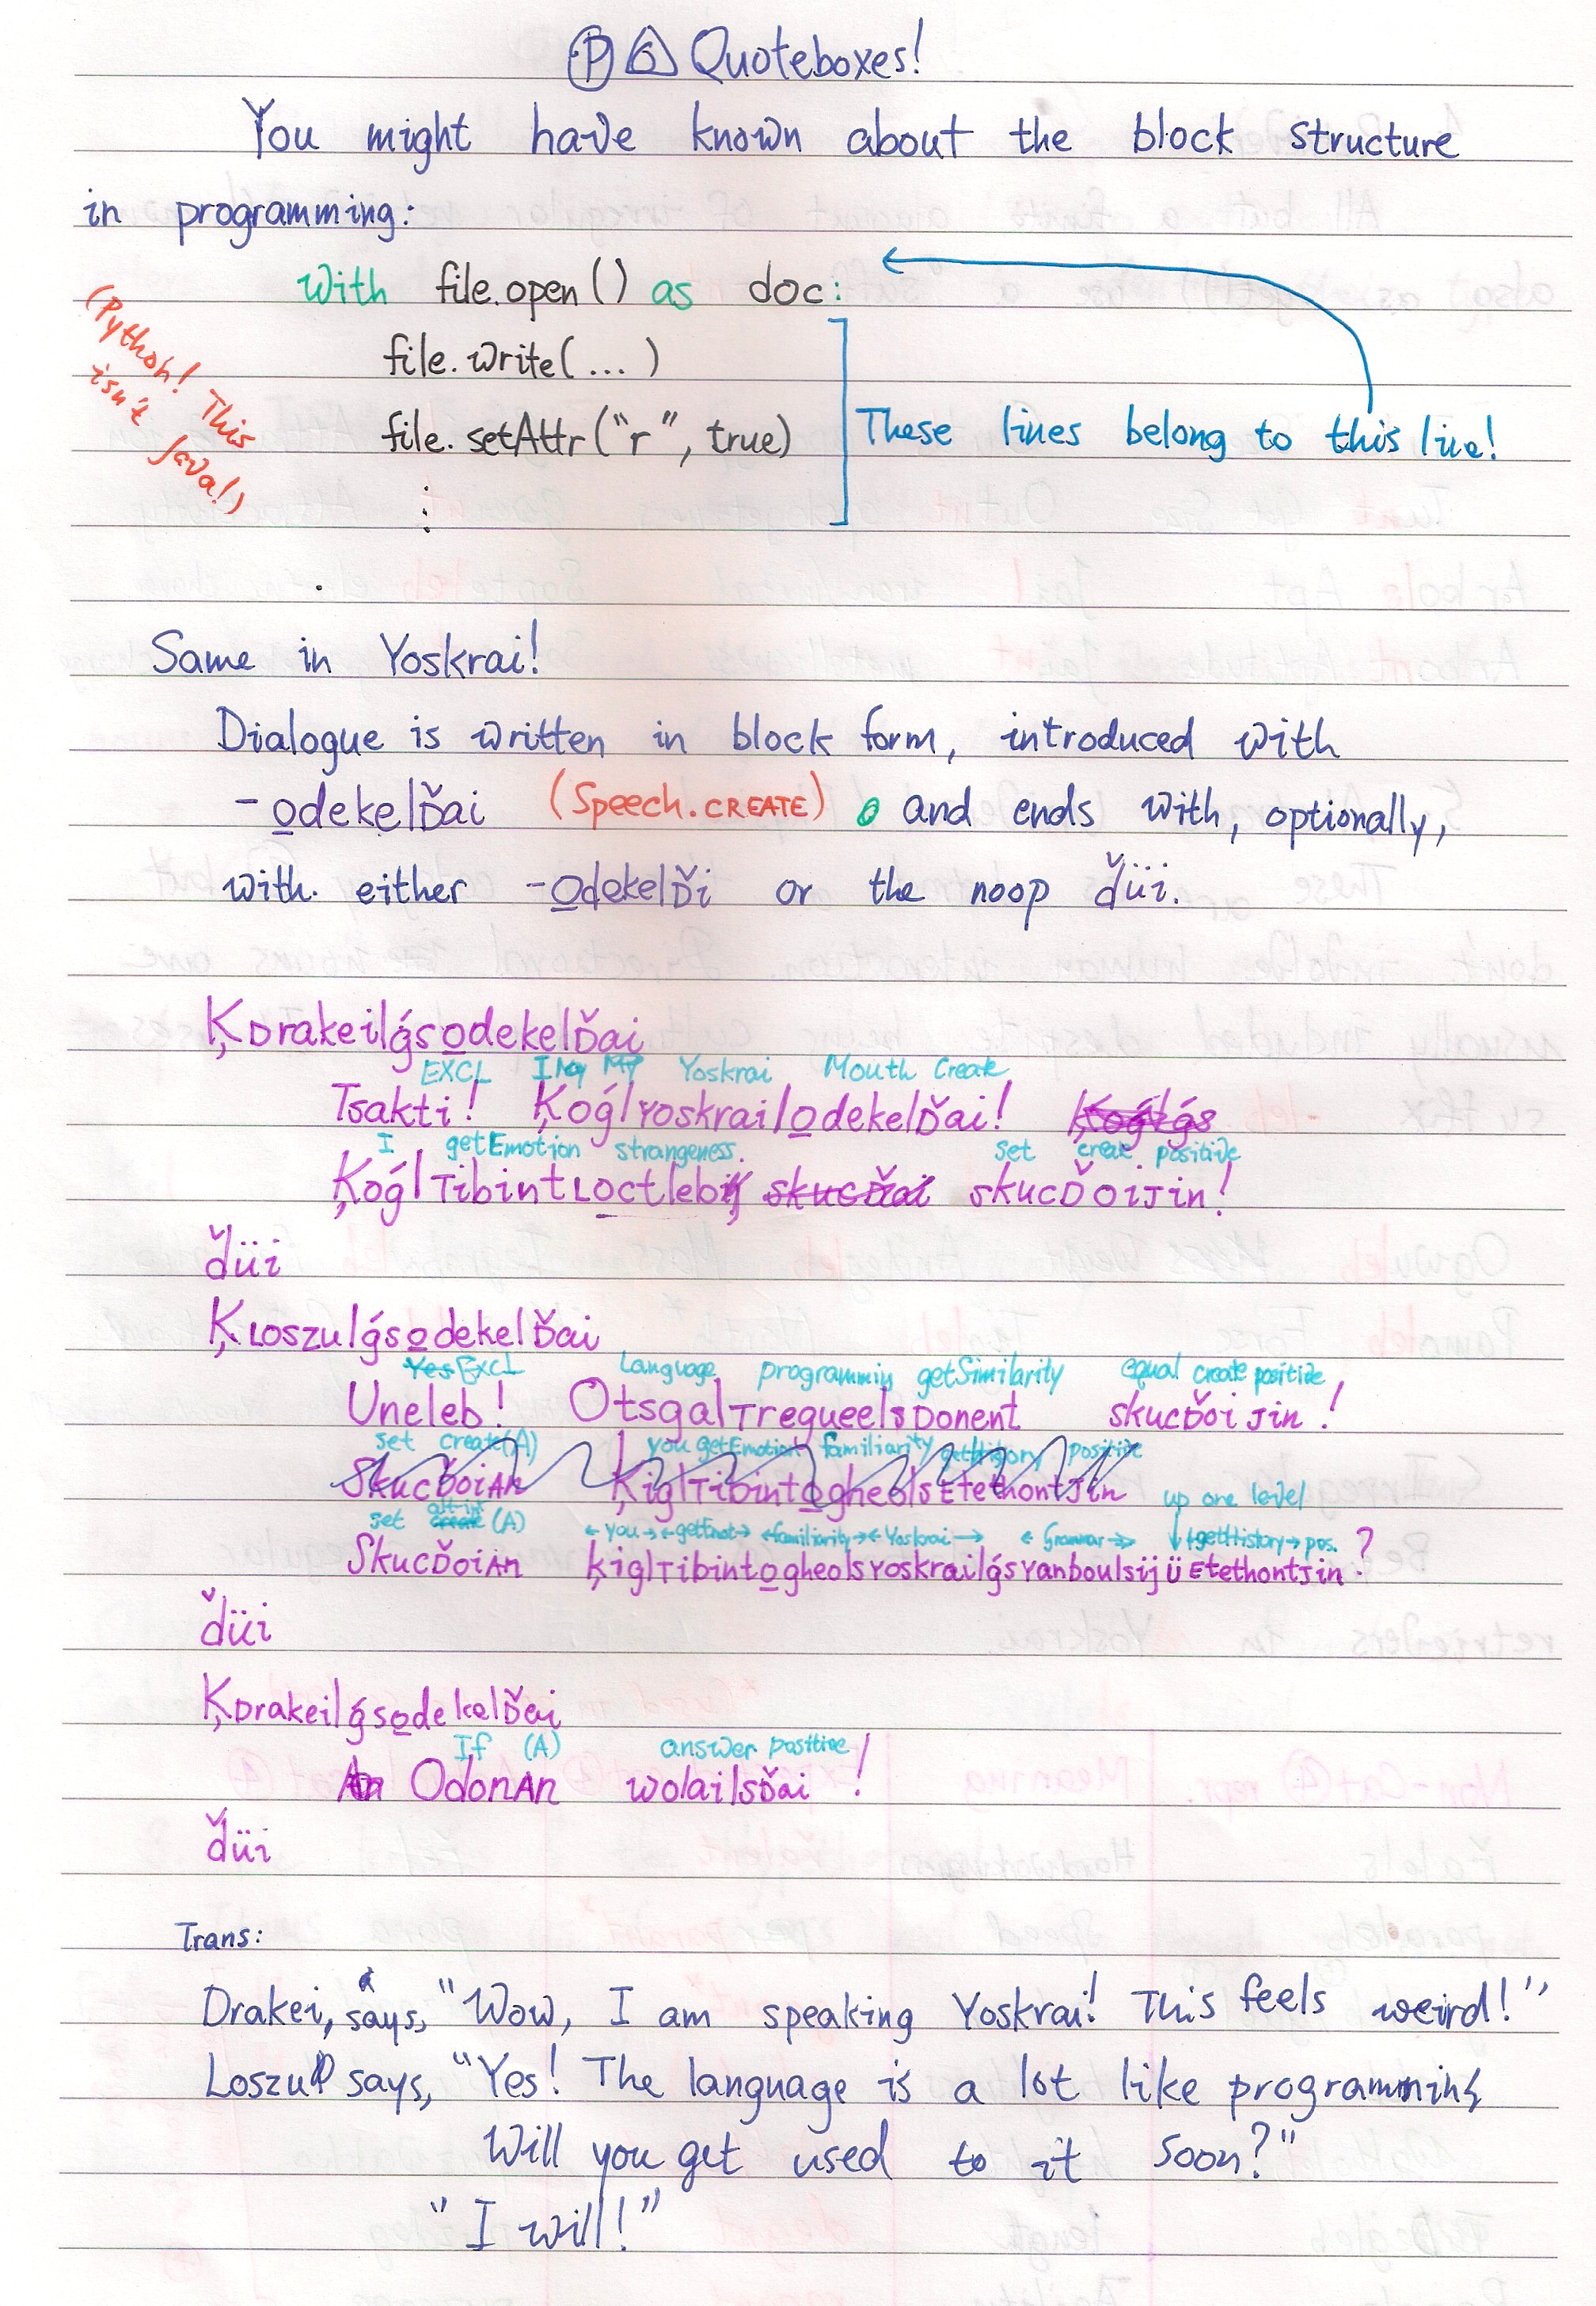 Ⓟ 6 Quoteboxes!
You might have known about the block structure
in programming:
with file.open() as doc:
file.write(...)
file.setAttr("r", true)
⋮
(Python! This
isn't Java!)
These lines belong to this line!
Same in Yoskrai!
Dialogue is written in block form, introduced with
-o̲dekelĎai (Speech.CREATE) and ends with, optionally,
with either -o̲dekelĎi or the noop ďüi.
Ķᴅrakeilǵso̲dekelĎai
EXCL Yoskrai Mouth Create
Tsakti! Ķoǵlʏoskrailo̲dekelĎai!
I getEmotion strangeness. set creat. positive
ĶoǵlTibintʟo̲ctleb skucĎOiJin!
ďüi
Ķʟoszulǵso̲dekelĎai
EXCL Language programmin getSimilarity equal create positive
Uneleb! OtsgalTrequeelsDonent skucĎoiJin!
set create(A) you getEmotion familiarity getHistory positive
SkucĎoiAn ĶiglTibinto̲gheolsEtethontJin up one level
set (A) ←you→←getEmot→ ←familiarity→←Yoskrai→ ←Grammar→ ↓←getHistory→pos.
SkucĎoiAn ĶiglTibinto̲gheolsYoskrailǵsYanboulsijüEtethontJin?
ďüi
Ķᴅrakeilǵso̲dekelĎai
If (A) answer positive
OdonAn wolailsĎai!
ďüi
Trans:
Drakei, says, "Wow, I am speaking Yoskrai! This feels weird!"
Loszul says, "Yes! The language is a lot like programming
Will you get used to it soon?"
"I will!"